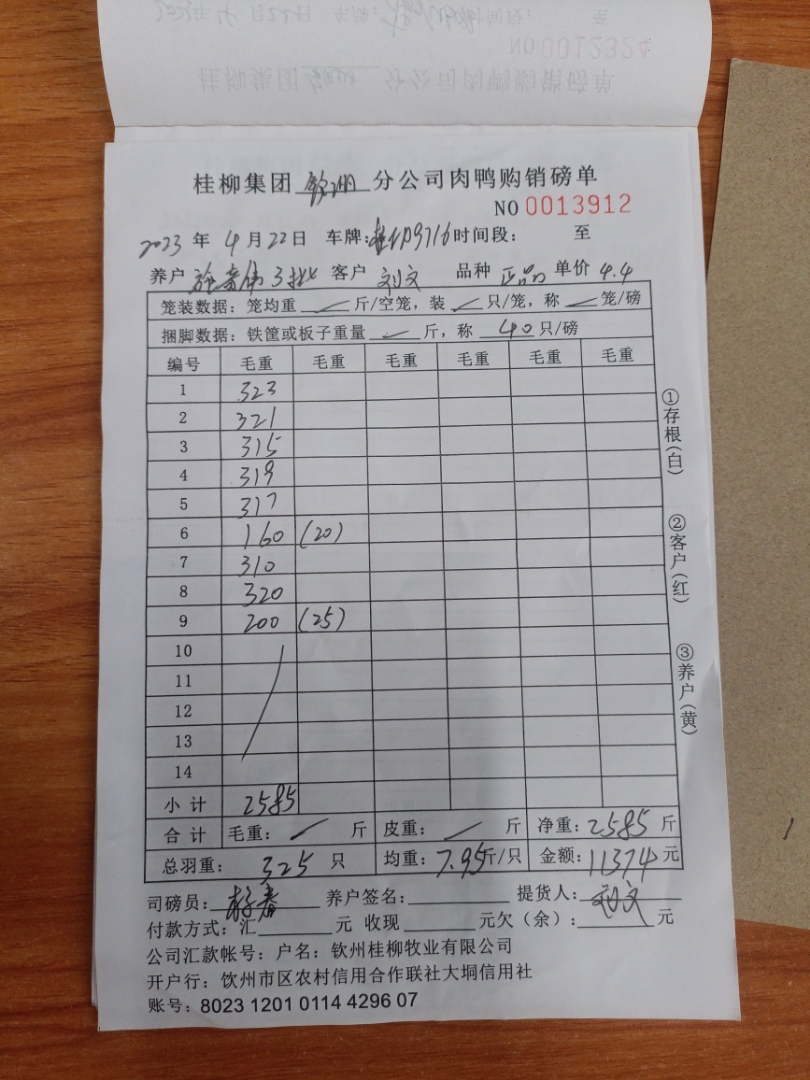 桂柳集团 钦州 分公司肉鸭购销磅单
NO 0013912
2023 年 4 月 22 日 车牌: 9716 时间段: 至
养户 3批 客户 刘文 品种 正品 单价 4.4
笼装数据: 笼均重 ✓ 斤/空笼, 装 ✓ 只/笼, 称 ✓ 笼/磅
捆脚数据: 铁筐或板子重量 ✓ 斤, 称 40 只/磅
编号 毛重 毛重 毛重 毛重 毛重 毛重
1 323
2 321
3 315
4 319
5 317
6 160 (20)
7 310
8 320
9 200 (25)
10
11
12
13
14
小计 2585
合计 毛重: 斤 皮重: 斤 净重: 2585 斤
总羽重: 325 只 均重: 7.95斤/只 金额: 11374 元
司磅员: 养户签名: 提货人: 刘文
付款方式: 汇 元 收现 元欠(余): 元
公司汇款帐号: 户名: 钦州桂柳牧业有限公司
开户行: 饮州市区农村信用合作联社大垌信用社
账号: 8023 1201 0114 4296 07
①存根(白)
②客户(红)
③养户(黄)
NO 0012324